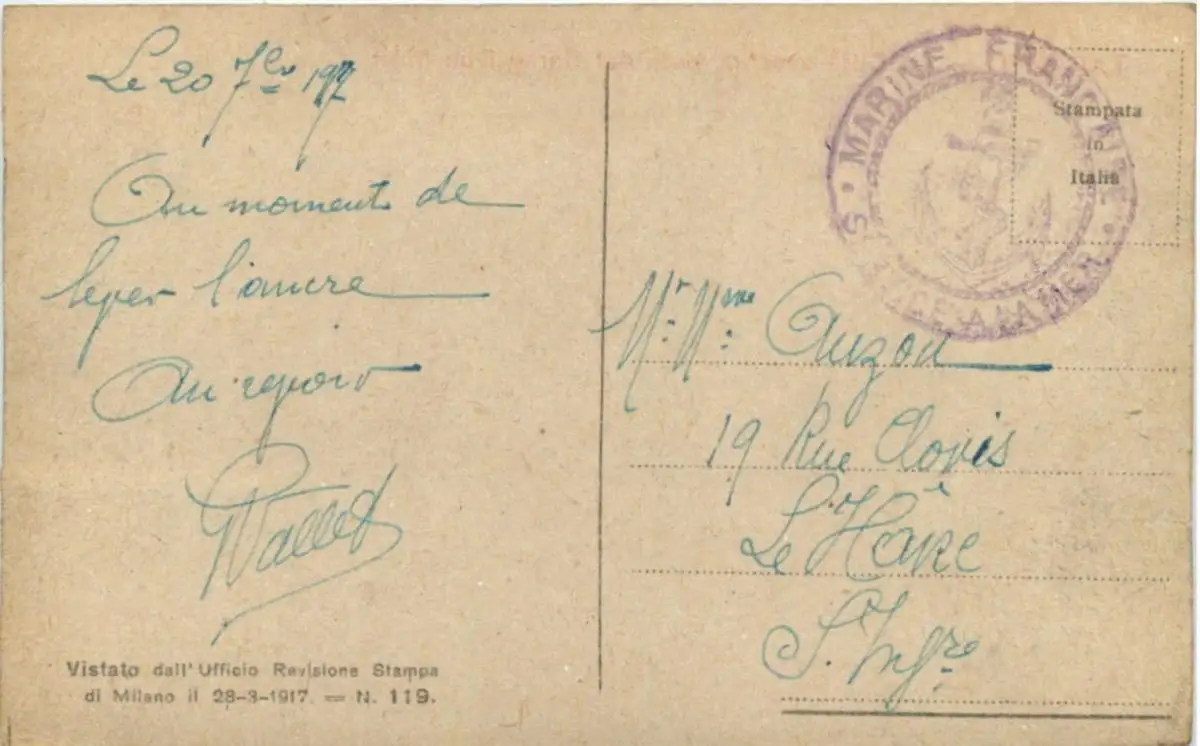 Le 20 7bre 1917
Au moment de
lever l'ancre
Au revoir
MARINE FRANÇAISE
SERVICE A LA MER
Stampata
in
Italia
Mr. Mme. Auzou
19 Rue Clovis
Le Hâvre
S. Infre
Vistato dall'Ufficio Revisione Stampa
di Milano il 28-3-1917. — N. 119.